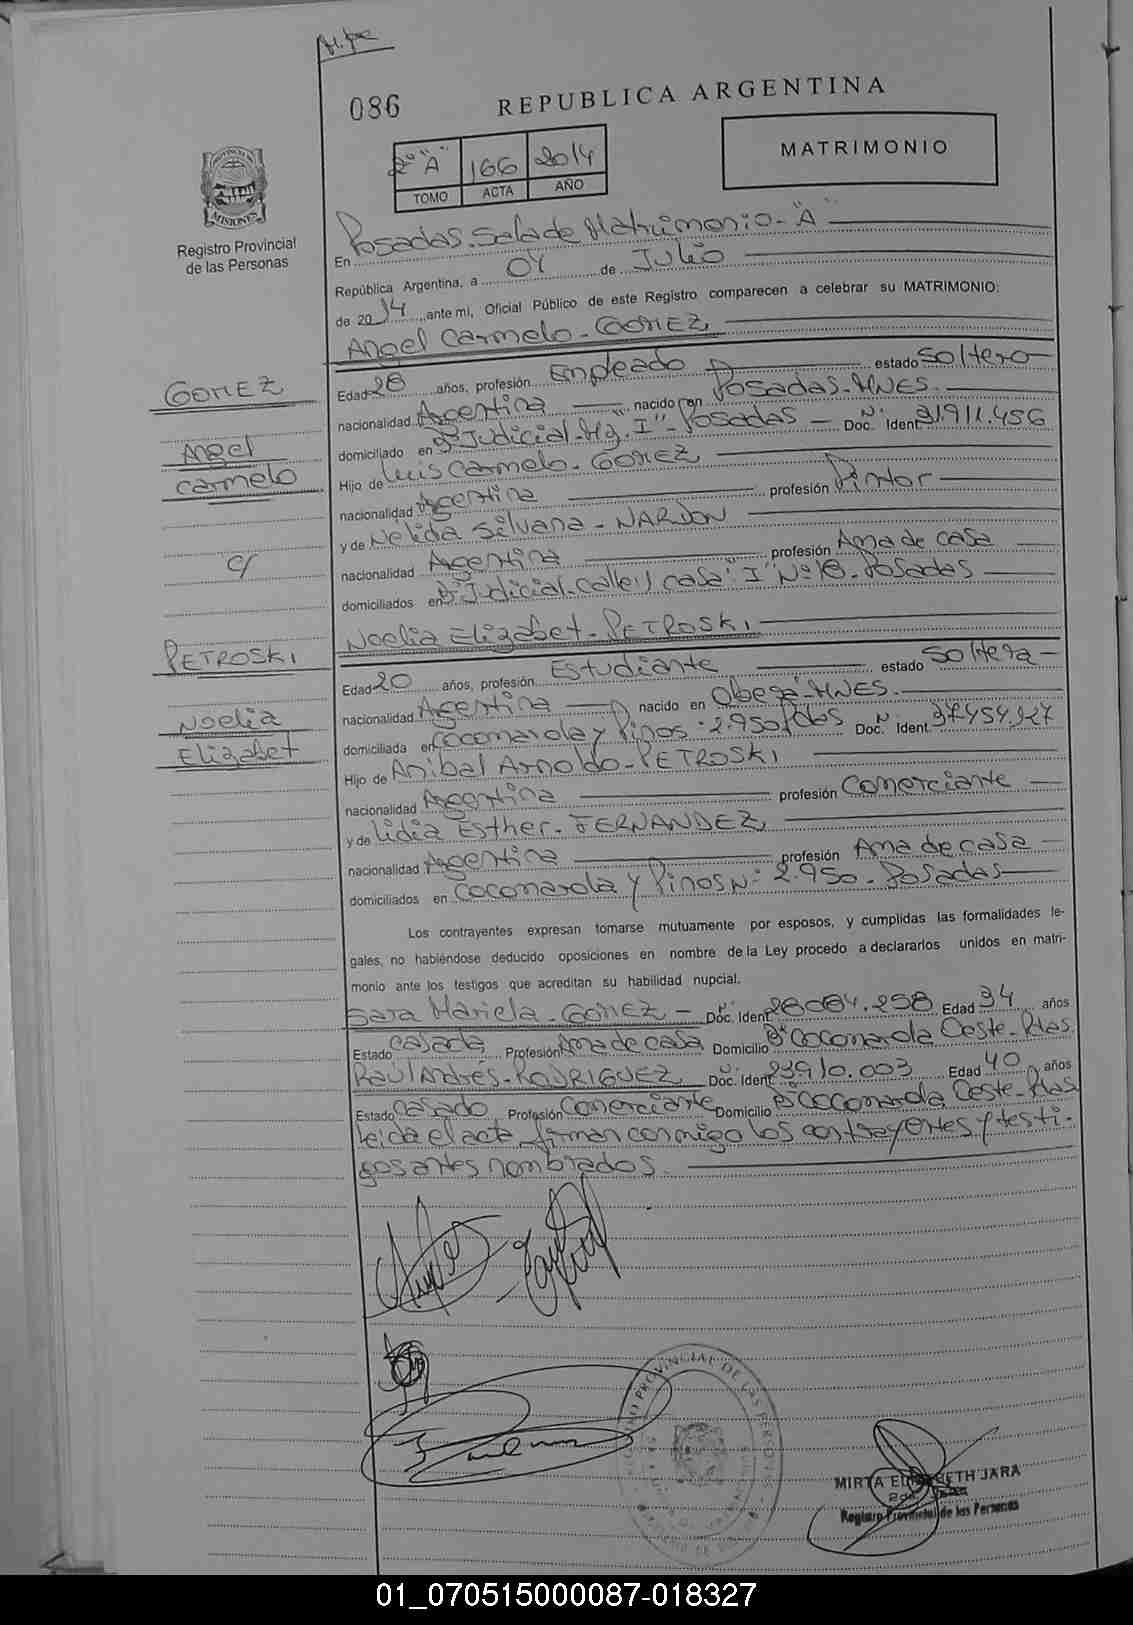 086
REPUBLICA ARGENTINA
2º "A" 166 2014
TOMO ACTA AÑO
MATRIMONIO
PROVINCIA DE
MISIONES
Registro Provincial
de las Personas
En Posadas. Sala de Matrimonio - "A"
República Argentina, a 04 de Julio
de 2014, ante mí, Oficial Público de este Registro comparecen a celebrar su MATRIMONIO:
Angel Carmelo - GOMEZ
GOMEZ
Angel
Carmelo
c/
PETROSKI
Noelia
Elizabet
Edad 28 años, profesión Empleado estado Soltero
nacionalidad Argentina nacido en Posadas - MNES.
domiciliado en Bº Judicial - Mz. "I" - Posadas Doc. Ident. 31911.456
Hijo de Luis Carmelo - GOMEZ
nacionalidad Argentina profesión Pintor
y de Nelida Silvana - NARDON
nacionalidad Argentina profesión Ama de casa
domiciliados en Bº Judicial - Calle casa "I" Nº 18 - Posadas
Noelia Elizabet - PETROSKI
Edad 20 años, profesión Estudiante estado Soltera
nacionalidad Argentina nacido en Oberá - MNES.
domiciliada en Cocomarola y Pinos - 2.950 Pdas Doc. Ident. 37.454.927
Hijo de Anibal Arnoldo - PETROSKI
nacionalidad Argentina profesión Comerciante
y de Lidia Esther - FERNANDEZ
nacionalidad Argentina profesión Ama de casa
domiciliados en Cocomarola y Pinos Nº 2.950 - Posadas
Los contrayentes expresan tomarse mutuamente por esposos, y cumplidas las formalidades le-
gales, no habiéndose deducido oposiciones en nombre de la Ley procedo a declararlos unidos en matri-
monio ante los testigos que acreditan su habilidad nupcial.
Sara Mariela - GOMEZ - Doc. Ident. 28084.258 Edad 34 años
Estado Casada Profesión Ama de casa Domicilio Bº Cocomarola Oeste - Pdas
Raul Andrés - RODRIGUEZ Doc. Ident. 23910.003 Edad 40 años
Estado Casado Profesión Comerciante Domicilio Bº Cocomarola Oeste - Pdas
Leida el acta, firman conmigo los contrayentes y testi-
gos antes nombrados.
MIRTA ELIZABETH JARA
Registro Provincial de las Personas
01_070515000087-018327